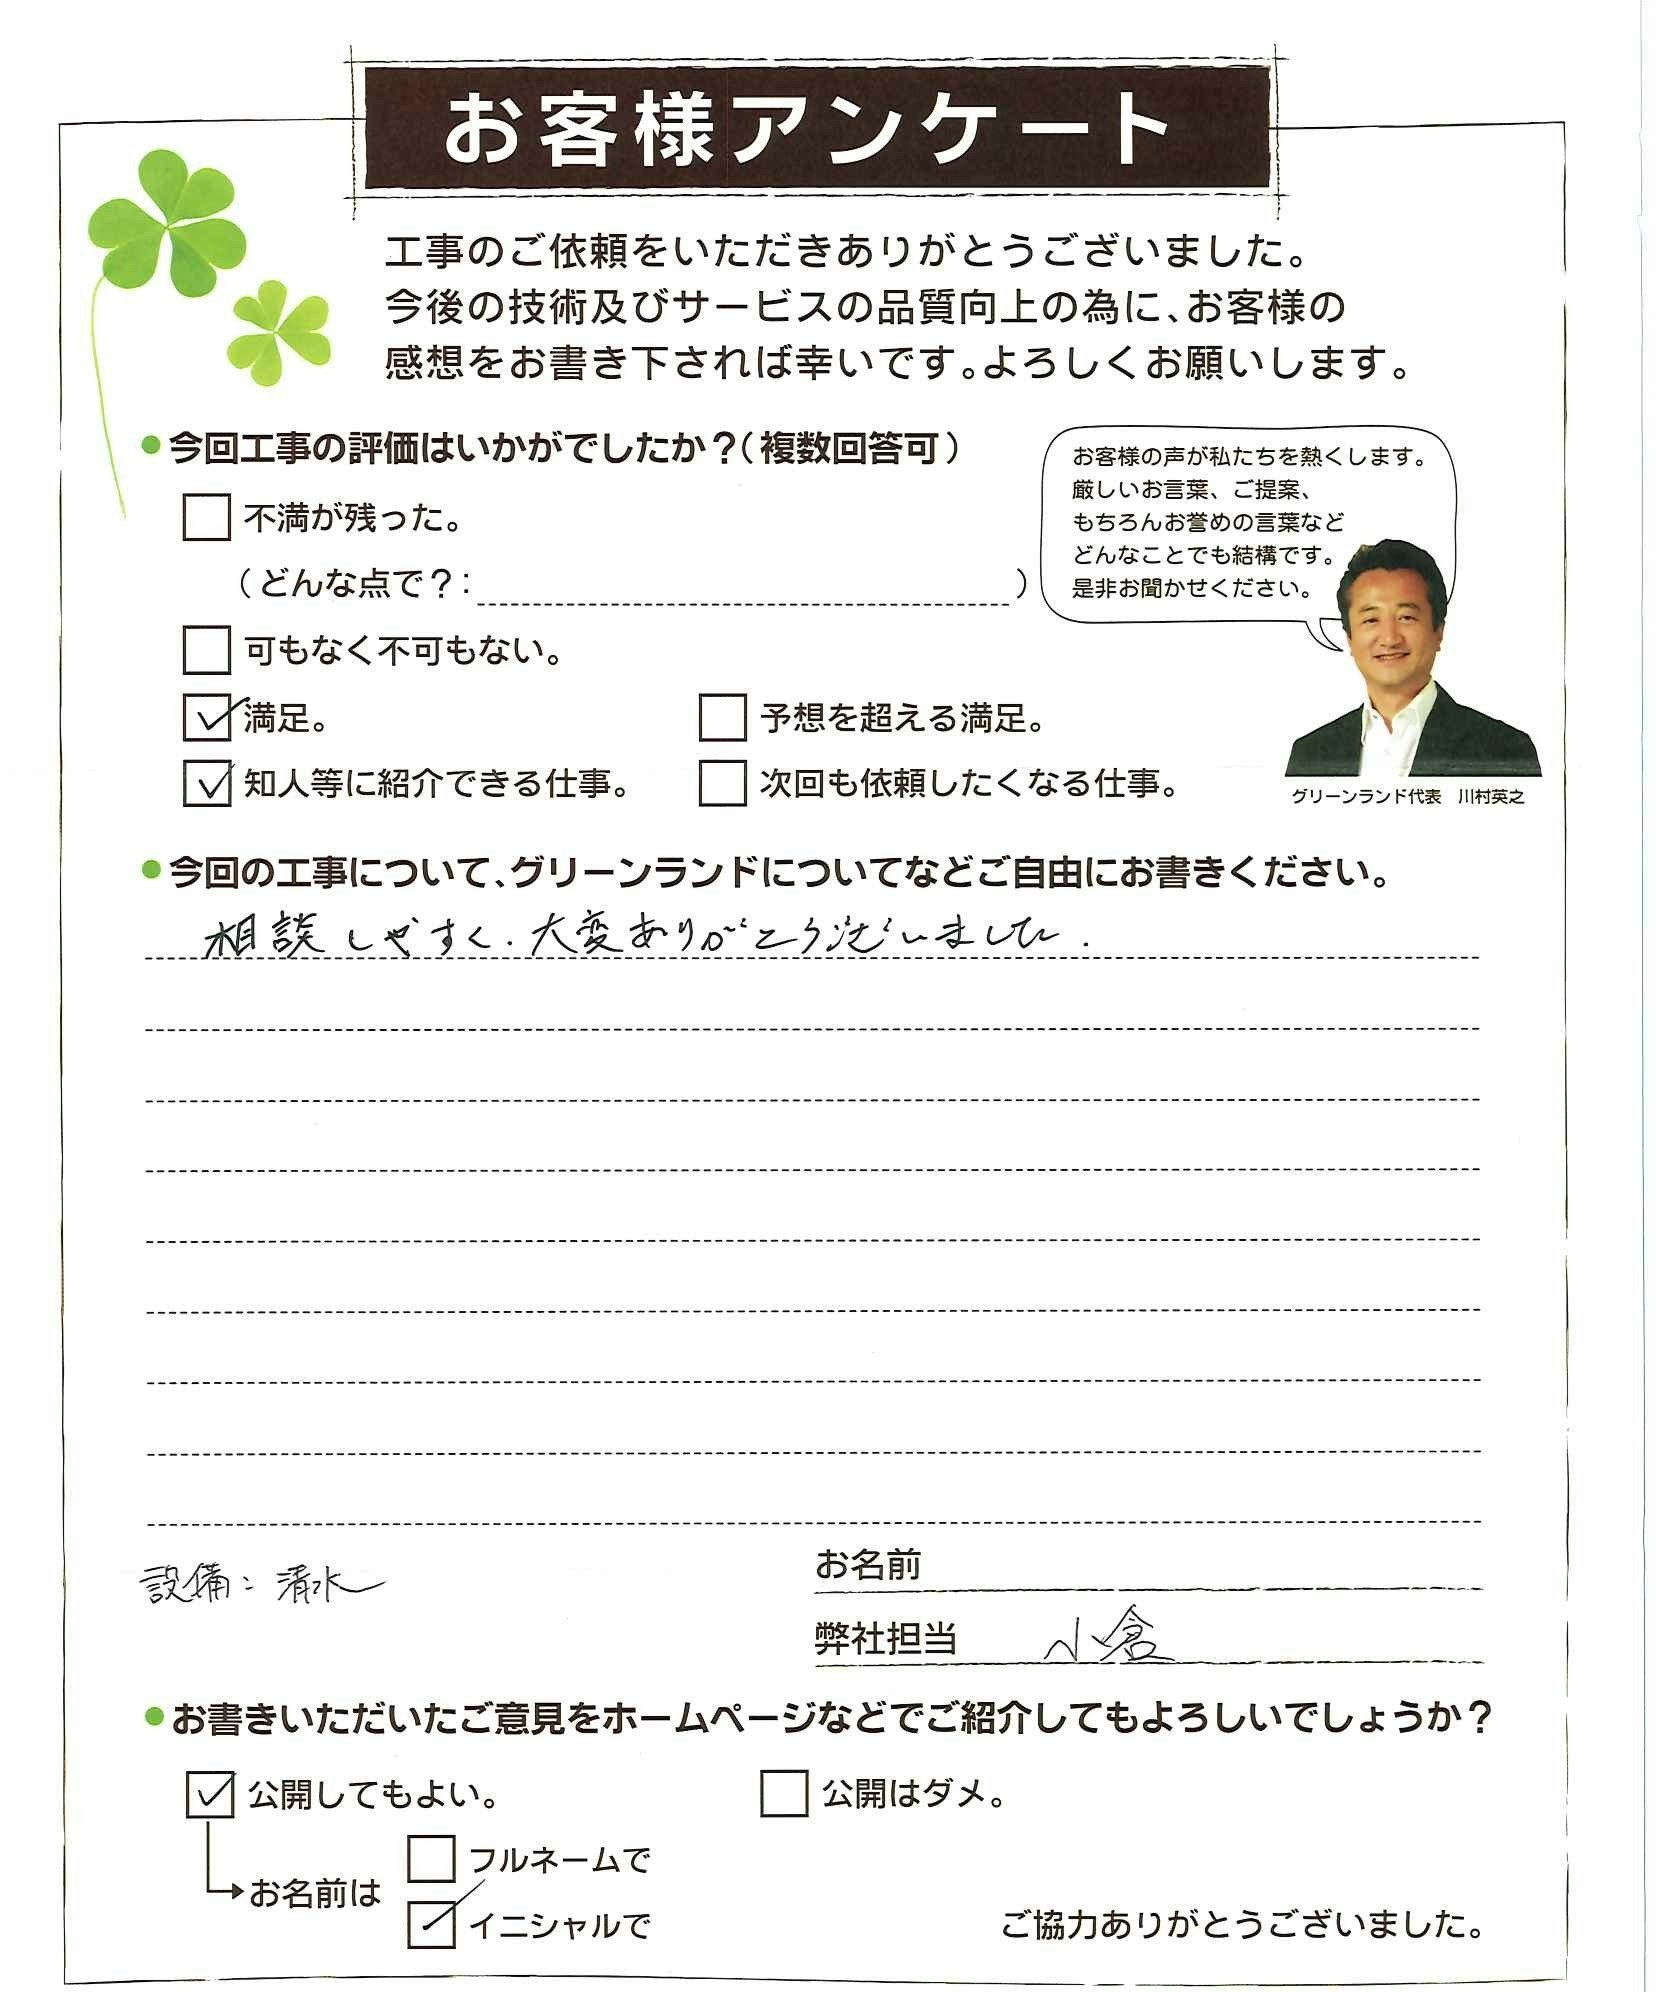 お客様アンケート
工事のご依頼をいただきありがとうございました。
今後の技術及びサービスの品質向上の為に、お客様の
感想をお書き下されば幸いです。よろしくお願いします。
●今回工事の評価はいかがでしたか？（複数回答可）
不満が残った。
（どんな点で？：）
可もなく不可もない。
満足。
予想を超える満足。
知人等に紹介できる仕事。
次回も依頼したくなる仕事。
お客様の声が私たちを熱くします。
厳しいお言葉、ご提案、
もちろんお誉めの言葉など
どんなことでも結構です。
是非お聞かせください。
グリーンランド代表　川村英之
●今回の工事について、グリーンランドについてなどご自由にお書きください。
相談しやすく、大変ありがとうございました.
設備：清水
お名前
弊社担当　小倉
●お書きいただいたご意見をホームページなどでご紹介してもよろしいでしょうか？
公開してもよい。
公開はダメ。
お名前は
フルネームで
イニシャルで
ご協力ありがとうございました。